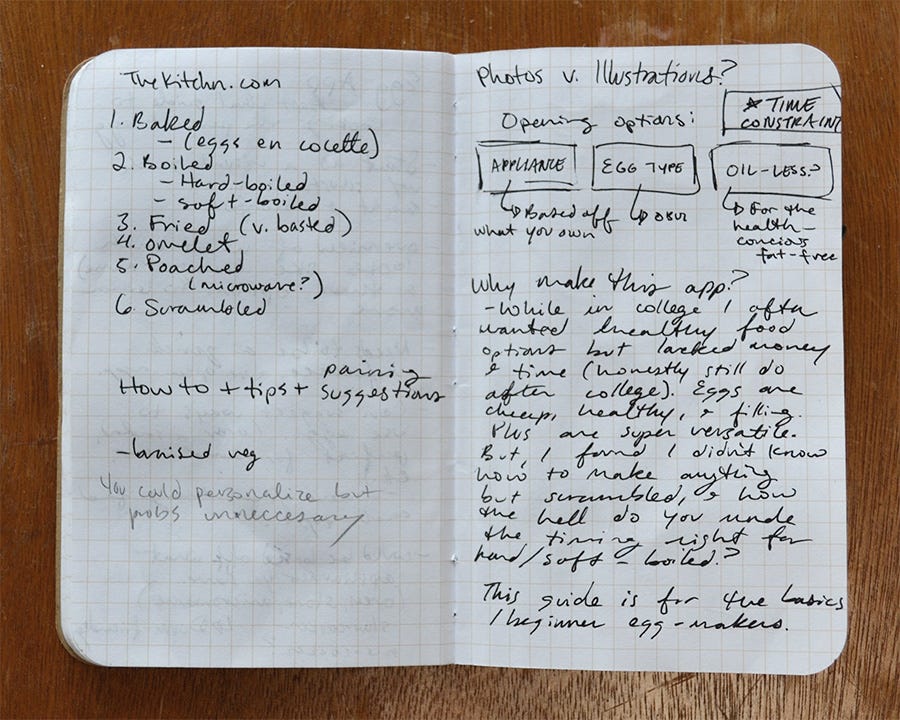 TheKitchn.com
1. Baked
- (eggs en cocette)
2. Boiled
- Hard-boiled
- soft-boiled
3. Fried (v. basted)
4. omelet
5. Poached
(microwave?)
6. Scrambled
How to + tips + pairing suggestions
- braised veg
You could personalize but
probs unneccesary
Photos v. Illustrations?
* TIME
CONSTRAINT
Opening options:
APPLIANCE
EGG TYPE
OIL-LESS?
Based off
what you own
For the
health-
concious
fat-free
Why make this app?
- While in college I often
wanted healthy food
options but lacked money
& time (honestly still do
after college). Eggs are
cheap, healthy, & filling.
Plus are super versatile.
But, I found I didn't know
how to make anything
but scrambled, & how
the hell do you
the timing right for
hard/soft-boiled?
This guide is for the basics
/beginner egg-makers.